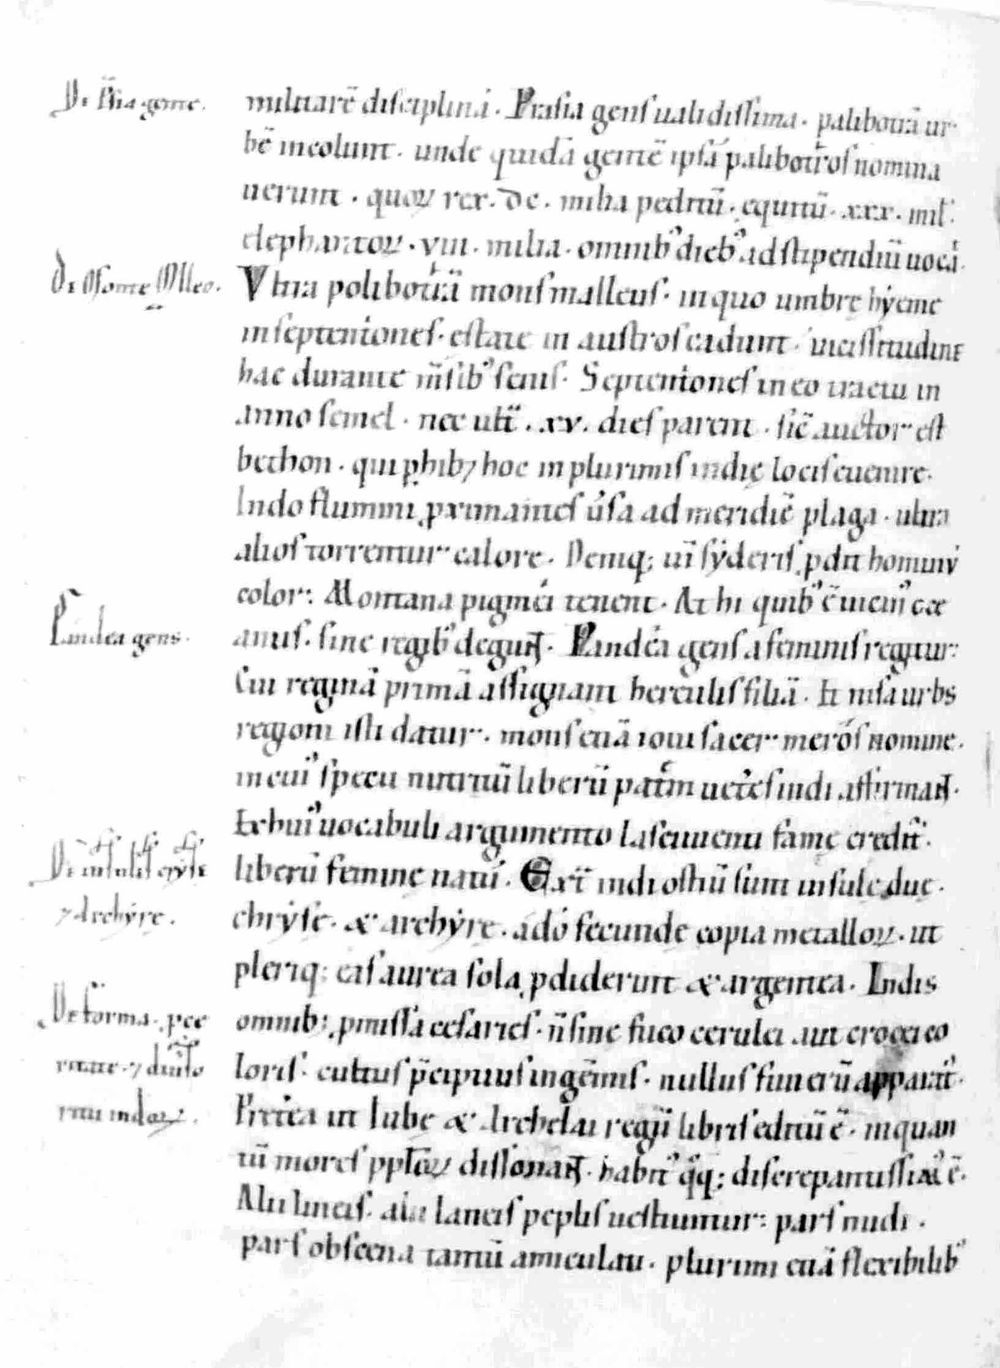 De P̄sia gente.
militarē disciplinā. Prasia gens ualidissima. palibotrā ur
bē incolunt. unde quidā gentē ipsā palibotros nomina
uerunt. quoꝝ rex. dc. milia peditū. equitū. xxx. mil̄.
elephantoꝝ. viii. milia. omnibꝰ diebꝰ ad stipendiū uocā.
De Monte Malleo.
Vltra polibotrā mons malleus. in quo umbrę hyeme
in septentriones. estate in austros cadunt. uicissitudine
hac durante m̄sibꝰ senis. Septentriones in eo tractu in
anno semel. nec ult̄. xv. dies parent. sic̄ auctor est
bethon. qui ꝑhibꝫ hoc in plurimis indię locis euenire.
Indo flumini ꝓximantes u̇sa ad meridiē plaga. ultra
alios torrentur calore. Deniqꝫ uī syderis ꝓdit hominū
color. Montana pigmei tenent. At hi quibꝰ ē uicinꝰ oce
Pandea gens.
anus. sine regibꝰ degunt. Pandea gens a feminis regitur.
Cui reginā primā assignant herculis filiā. Et nisa urbs
regioni isti datur. mons etiā ioui sacer meros nomine.
in cuiꝰ specu nutritū liberū patrem ueteres indi affirmant.
Ex huiꝰ uocabuli argumento lasciuienti famę credit̄.
De insulis cryse
⁊ Archyre.
liberū femine natū. Ext̄ indi ostiū sunt insule due.
chryse. & archyre. ado fecunde copia metalloꝝ. ut
pleriqꝫ eas aurea sola ꝓdiderint & argentea. Indis
De forma. ꝓce
ritate. ⁊ diuiso
ritu indoꝝ.
omnibꝫ ꝓmissa cesaries. n̄ sine fuco cerulei aut crocei co
loris. cultus p̄cipuus in gēmis. nullus funerū apparat̄.
Pretea ut Iube & Archelai regū libris editū ē. in quan
tū mores pploꝝ dissonant. habitꝰ qͦqꝫ discrepantissimꝰ ē.
Alii lineis. alii laneis peplis uestiuntur. pars nudi.
pars obscena tantū amiculati. plurimi etiā flexibilibꝰ